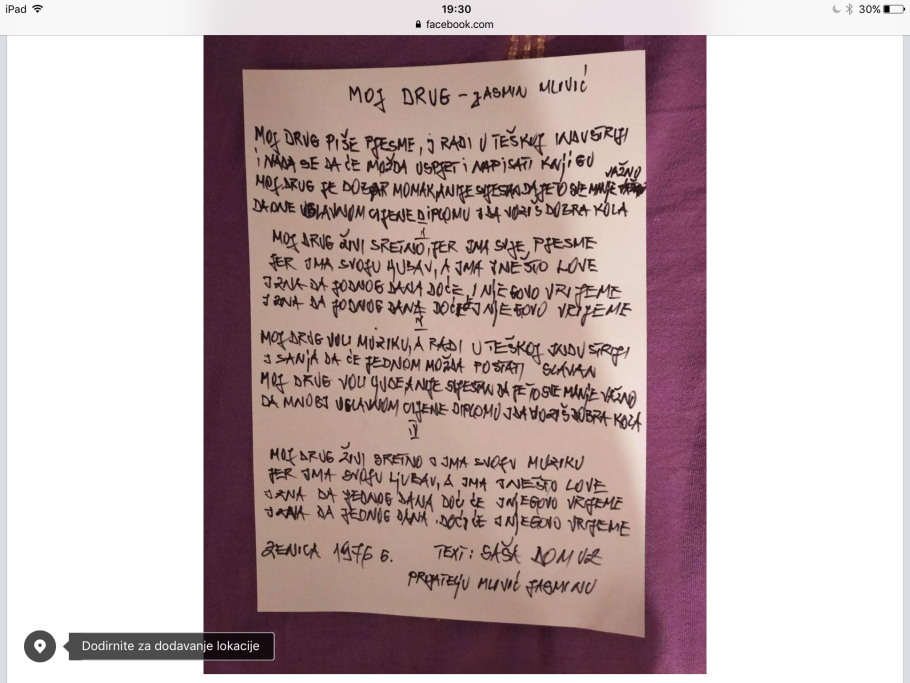 iPad
19:30
facebook.com
30%
MOJ DRUG – JASMIN MLIVIĆ
MOJ DRUG PIŠE PJESME, J RADI U TEŠKOJ INDUSTRIJI
I NADA SE DA ĆE MOŽDA USPJET I NAPISATI KNJIGU
MOJ DRUG JE DOBAR MOMAK, A NIJE SVJESTAN DA JE TO SVE MANJE VAŽNO
DA ONE UGLAVNOM CIJENE DIPLOMU J DA VOZIŠ DOBRA KOLA
II
MOJ DRUG ŽIVI SRETNO, JER JMA SVJE PJESME
JER JMA SVOJU LJUBAV, A JMA JNEŠTO LOVE
J ZNA DA JODNOG DANA DOĆE, I NJEGOVO VRIJEME
J ZNA DA JODNOG DANA DOĆ ĆE J NJEGOVO VRIJEME
MOJ DRUG VOLI MUZIKU, A RADI U TEŠKOJ JNDUSTRIJI
J SANJA DA ĆE JEDNOM MOŽDA POSTATI SLAVAN
MOJ DRUG VOLI LJUDE A NIJE SVJESTAN DA JE TO SVE MANJE VAŽNO
DA MNOGI UGLAVNOM CIJENE DIPLOMU J DA VOZIŠ DOBRA KOLA
IV
MOJ DRUG ŽIVI SRETNO J JMA SVOJU MUZIKU
JER JMA SVOJU LJUBAV, A JMA JNEŠTO LOVE
J ZNA DA JEDNOG DANA DOĆ ĆE J NJEGOVO VRIJEME
J ZNA DA JEDNOG DANA DOĆI ĆE J NJEGOVO VRIJEME
ZENICA 1976 G. TEXT: SAŠA DOMUZ
PRIJATELJU MLIVIĆ JASMINU
Dodirnite za dodavanje lokacije